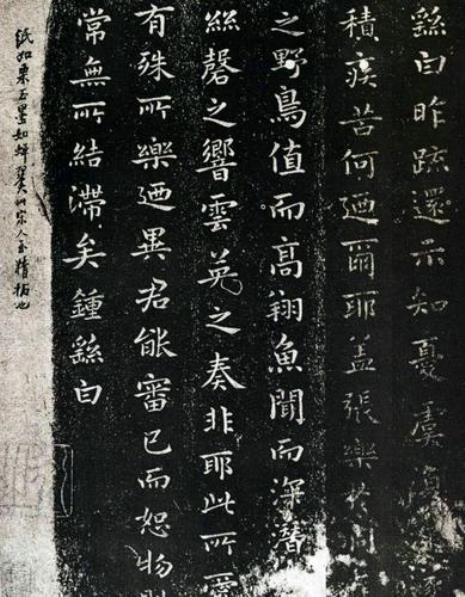 繇白昨疏還示知憂虞復深遂
積疾苦何迺爾耶盖張樂於洞
之野鳥值而高翔魚聞而深潛
絲磬之響雲英之奏非耶此所
有殊所樂迺異君能審已而恕物則
常無所結滯矣鍾繇白
紙如栗玉墨如蟬翼此宋人至精拓也